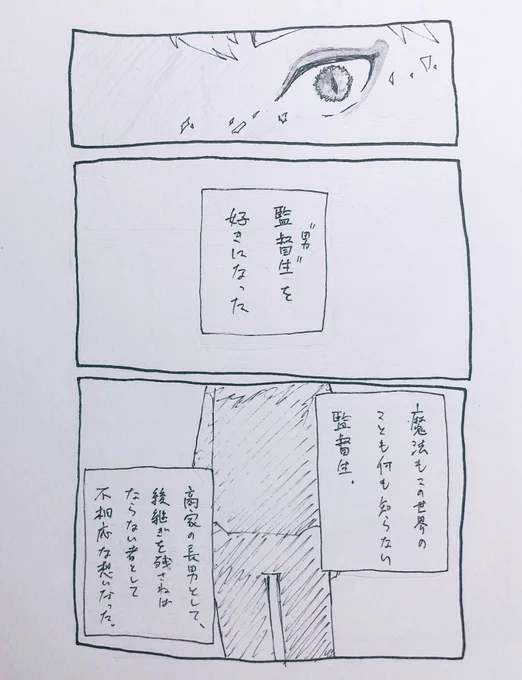 “男”
監督生を
好きになった
ー魔法もこの世界の
ことも何も知らない
監督生。
高家の長男として、
後継ぎを残さねば
ならない者として
不相応な想いなった。